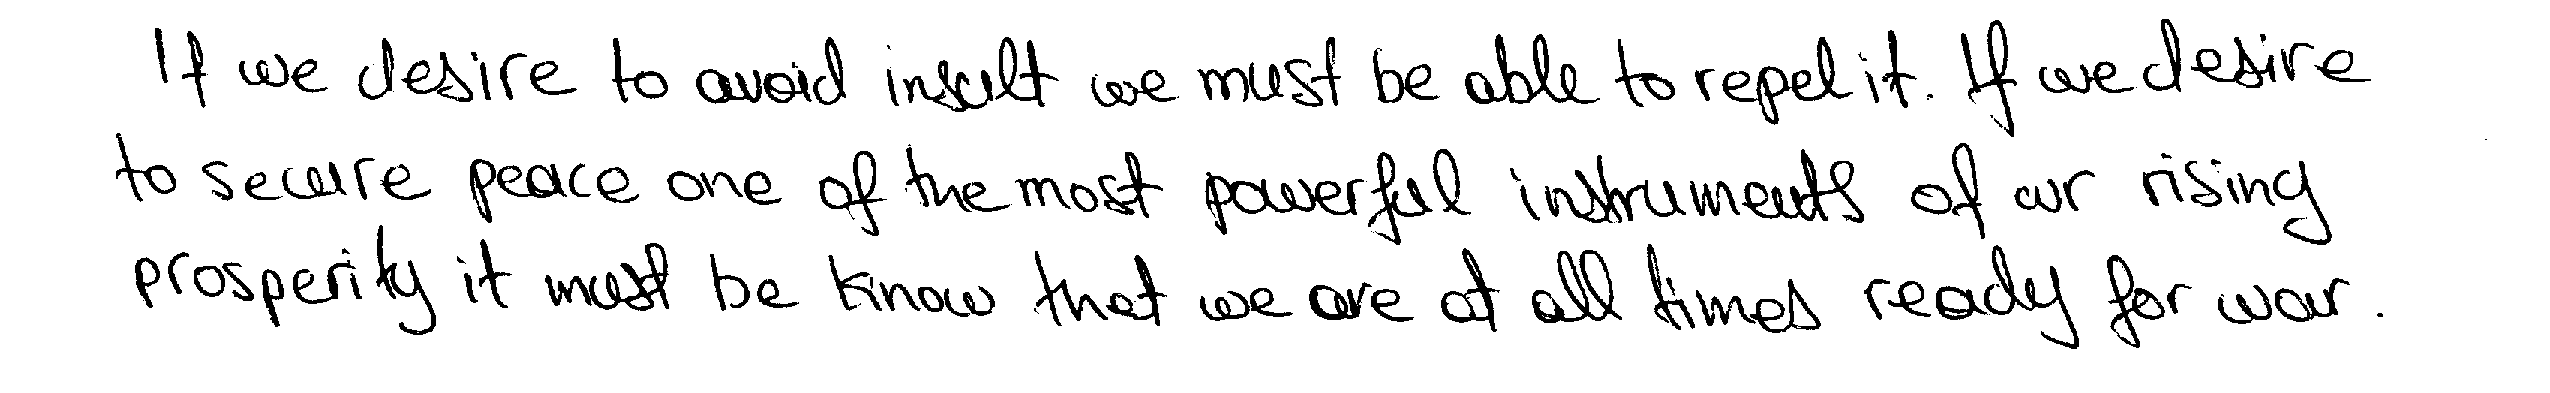 If we desire to avoid insult we must be able to repel it. If we desire
to secure peace one of the most powerful instruments of our rising
prosperity it must be know that we are at all times ready for war.